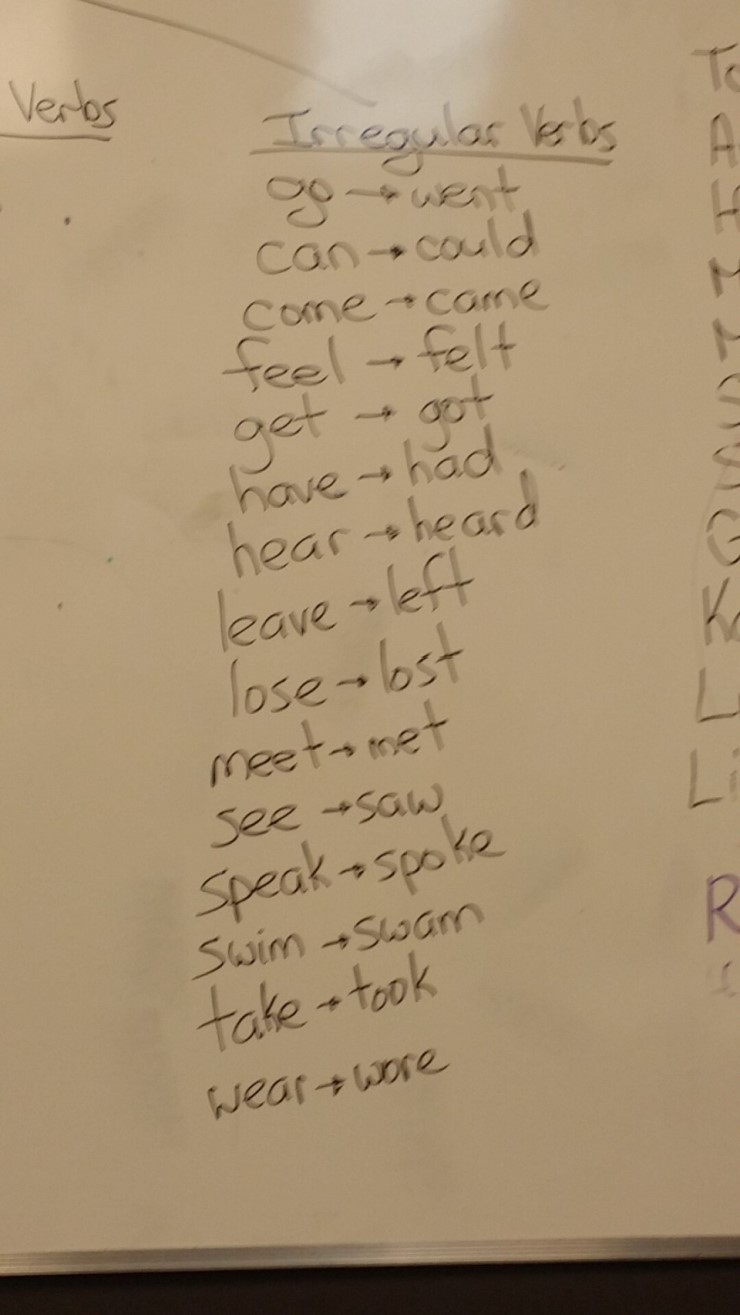 Verbs
Irregular Verbs
go → went
can → could
come → came
feel → felt
get → got
have → had
hear → heard
leave → left
lose → lost
meet → met
see → saw
speak → spoke
swim → swam
take → took
wear → wore